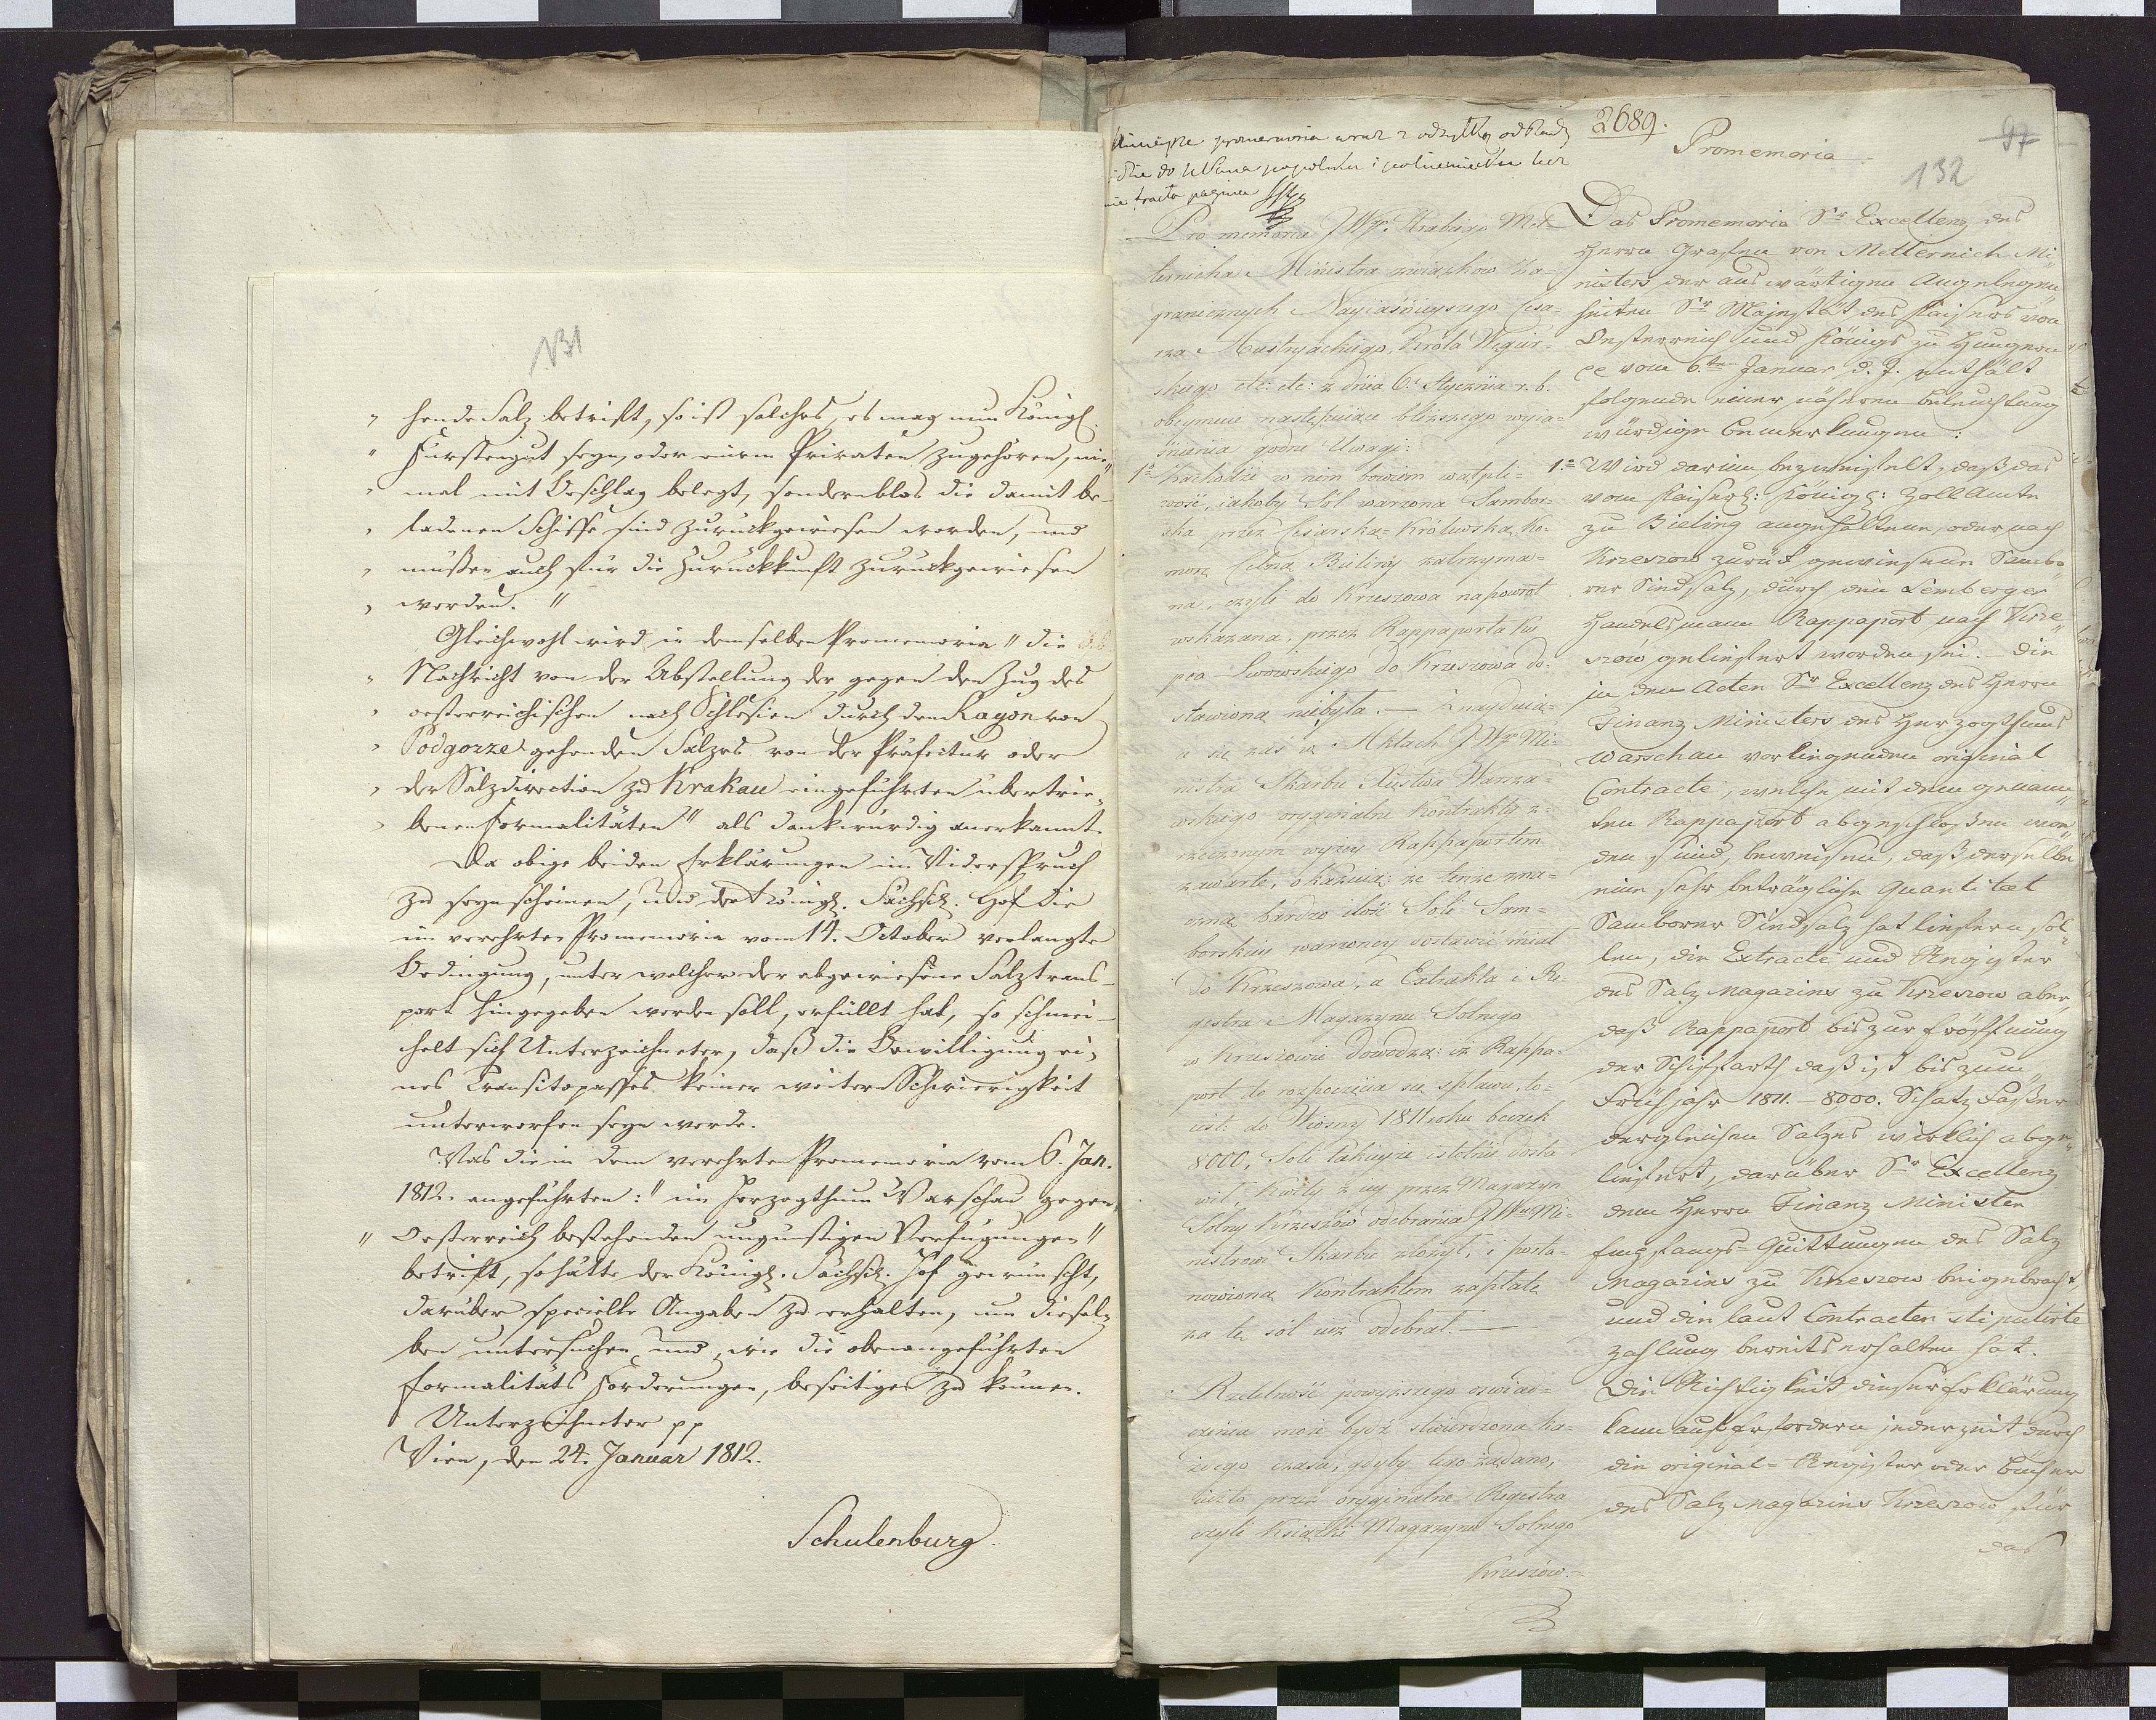 131
„ hende Salz betrift, so ist solches, es mag nun Königl.
„ Fürstengut seyn, oder einem Privaten zugehören, nie„
„ mal mit Beschlag belegt, sondern blos die damit be-
„ ladenen Schiffe sind zurückgewiesen worden, und
„ müßen auch für die Zurückkunft zurückgewiesen
„ werden. "
Gleichwohl wird in demselben Promemoria " die
„ Nachricht von der Abstellung der gegen den Zug des
„ oesterreichischen nach Schlesien durch den Rayon von
„ Podgorze gehenden Salzes von der Präfectur oder
„ der Salzdirection zu Krakau eingeführten übertrie„
„ benen Formalitäten" als dankwürdig anerkannt.
Da obige beiden Erklärungen im Widerspruch
zu seyn scheinen, und der Königl. Sächsis. Hof die
im verehrten Promemoria vom 14. October verlangte
Bedingung, unter welcher der abgewiesene Salztrans-
port hingegeben werden soll, erfüllt hat, so schmei-
chelt sich Unterzeichneter, daß die Bewilligung ei„
nes Transitopasses keiner weitern Schwierigkeit
unterworfen seyn werde.
Was die in dem verehrten Promemoria vom 6. Jan.
1812. angeführten: " im Herzogthum Warschau gegen
" Oesterreich bestehenden ungünstigen Verfügungen "
betrift, so hätte der Königl. Sächsis. Hof gewünscht,
darüber specielle Angaben zu erhalten, um diesel„
ben untersuchen und, wie die obenangeführten
Formalitäts Forderungen, beseitigen zu können.
Unterzeichneter pp
Wien, den 24. Januar 1812.
Schulenburg.
2689.
97
132
promemoria wraz z
do
Promemoria
Pro memoria JWgo Hrabiego Met-
ternicha Ministra związków Za-
granicznych Nayiaśnieyszego Cesa-
rza Austryackiego, Króla Węgier-
skiego etc: etc: z dnia 6. Stycznia r. b.
obeymuie następuiące bliższego wyia-
śnienia godne Uwagi:
1o Zachodzi w nim bowiem wątpli-
wość, iakoby Sól warzona Sambor-
ska przez Cesarską-Królewską Ko-
morę Celną Bieliny zatrzyma-
na, czyli do Krzeszowa napowrót
wskazana, przez Rappaporta Kup
ca Lwowskiego do Krzeszowa do-
stawioną niebyła. — Znayduią-
ce się zaś w Aktach JWgo Mi-
nistra Skarbu Xięstwa Warsza-
wskiego oryginalne Kontrakty z
rzeczonym wyżey Rappaportem
zawarte, okazuią: że tenże zna-
czną bardzo ilość Soli Sam-
borskiey warzoney dostawić miał
do Krzeszowa, a Extrakta i Re-
gestra Magazynu Solnego
w Krzeszowie dowodzą: iż Rappa-
port do rozpoczęcia się spławu, to-
iest: do Wiosny 1811 roku beczek
8000, Soli takieyże istotnie dosta
wił Kwity z iey przez Magazyn
Solny Krzeszów odebrania JWmu Mi-
nistrowi Skarbu złożył, i posta-
nowioną Kontraktem zapłatę
za tę sól iuż odebrał. —
Rzetelność powyższego oświad-
czenia może bydź stwierdzona ka-
żdego czasu, gdyby tego żądano,
iuż to przez oryginalne Regestra
czyli Książki Magazynu Solnego
Krzeszów.=
Das Promemoria Sr Excellenz des
Herrn Grafen von Metternich Mi„
nisters der auswärtigen Angelegen„
heiten Sr Majestät des Kaisers von
Oesterreich und Königs zu Hungern
ec vom 6.ten Januar d. J. enthält
folgende einer nähern Beleuchtung
würdige Bemerkungen:
1.o Wird darinn bezweifelt, daß das
vom Kaiserl: Königl: Zoll Amte
zu Bieling angehaltene, oder nach
Krzeszow zurück gewiesene Sambo„
rer Sindsalz, durch den Lemberger
Handelsmann Rappaport nach Krze„
szow geliefert worden sei. — Die
in den Acten Sr Excellenz des Herrn
Finanz Ministers des Herzogthums
Warschau vorliegenden original
Contracte, welche mit dem genann„
ten Rappaport abgeschloßen wor„
den sind, beweisen, daß derselbe
eine sehr beträgliche Quantitæt
Samborer Sindsalz hat liefern sol„
len, die Extracte und Register
des Salz Magazins zu Krzeszow aber,
daß Rappaport bis zur Eröffnung
der Schiffarth daß ist bis zum
Frühjahr 1811. — 8000. Schatz Faßer
dergleichen Salzes wirklich abge„
liefert, darüber Sr Excellenz
dem Herrn Finanz Minister
Empfangs-Quittungen des Salz
Magazins zu Krzeszow beigebracht,
und die laut Contracten stipulirte
Zahlung bereits erhalten hat.
Die Richtigkeit dieser Erklärung
kann auf Erfordern jederzeit durch
die original-Register oder Bücher
des Salz Magazins Krzeszow für
das